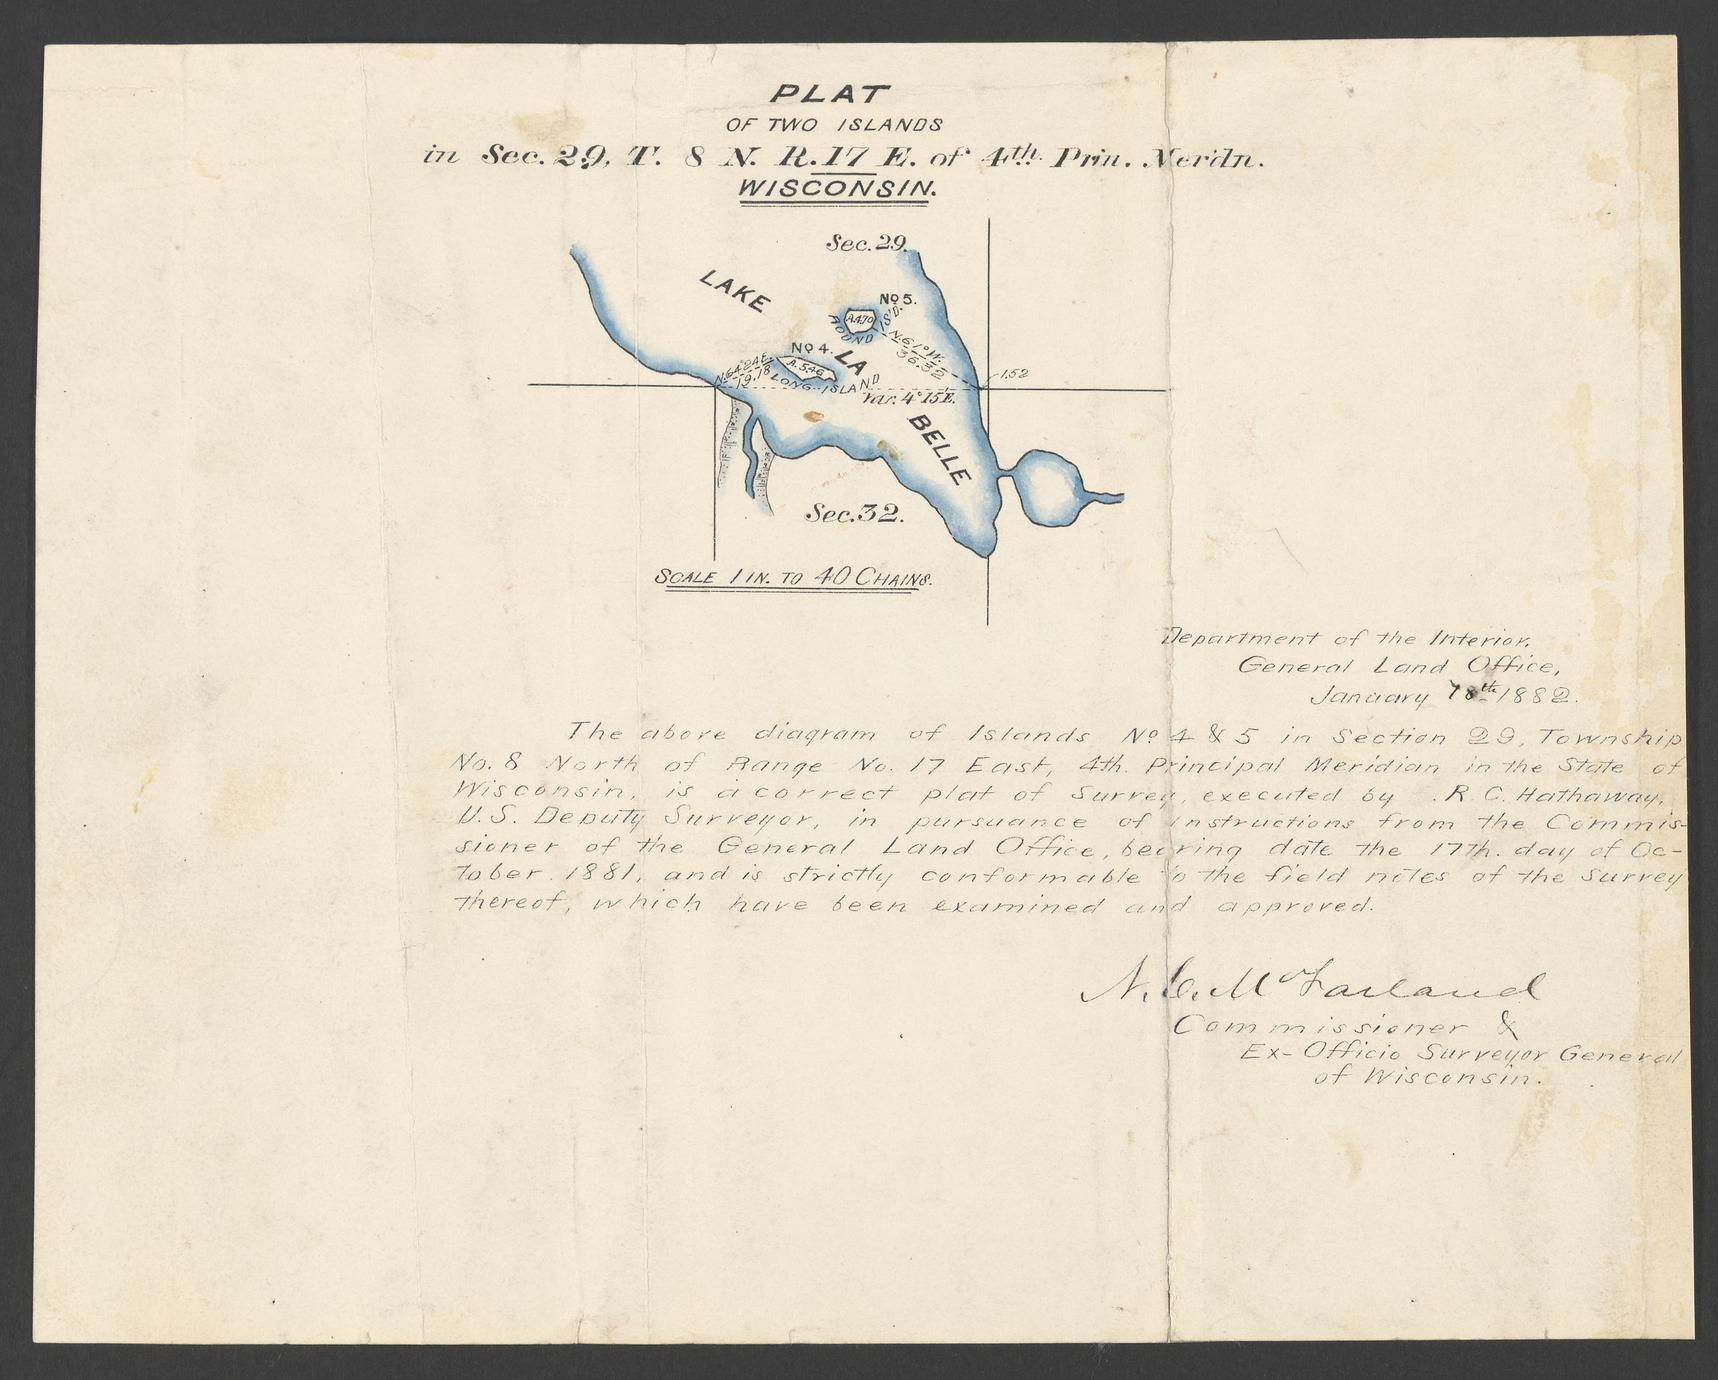 PLAT
OF TWO ISLANDS
in Sec. 29, T. 8 N. R. 17 E. of 4th. Prin. Merdn.
WISCONSIN.
Sec. 29.
LAKE
No 5.
A.4.70
ROUND IS'D.
N.61°W.
36.32
No 4.
LA
N.64°24'E.
19.18
A.5.46
LONG ISLAND
1.52
Var. 4°15'E.
BELLE
Sec. 32.
SCALE 1 IN. TO 40 CHAINS.
Department of the Interior.
General Land Office,
January 18th 1882.
The above diagram of Islands No 4 & 5 in Section 29, Township
No. 8 North of Range No. 17 East, 4th. Principal Meridian in the State of
Wisconsin, is a correct plat of Survey, executed by R. C. Hathaway,
U.S. Deputy Surveyor, in pursuance of instructions from the Commis-
sioner of the General Land Office, bearing date the 17th. day of Oc-
tober 1881, and is strictly conformable to the field notes of the Survey
thereof, which have been examined and approved.
N. C. McFarland
Commissioner &
Ex-Officio Surveyor General
of Wisconsin.